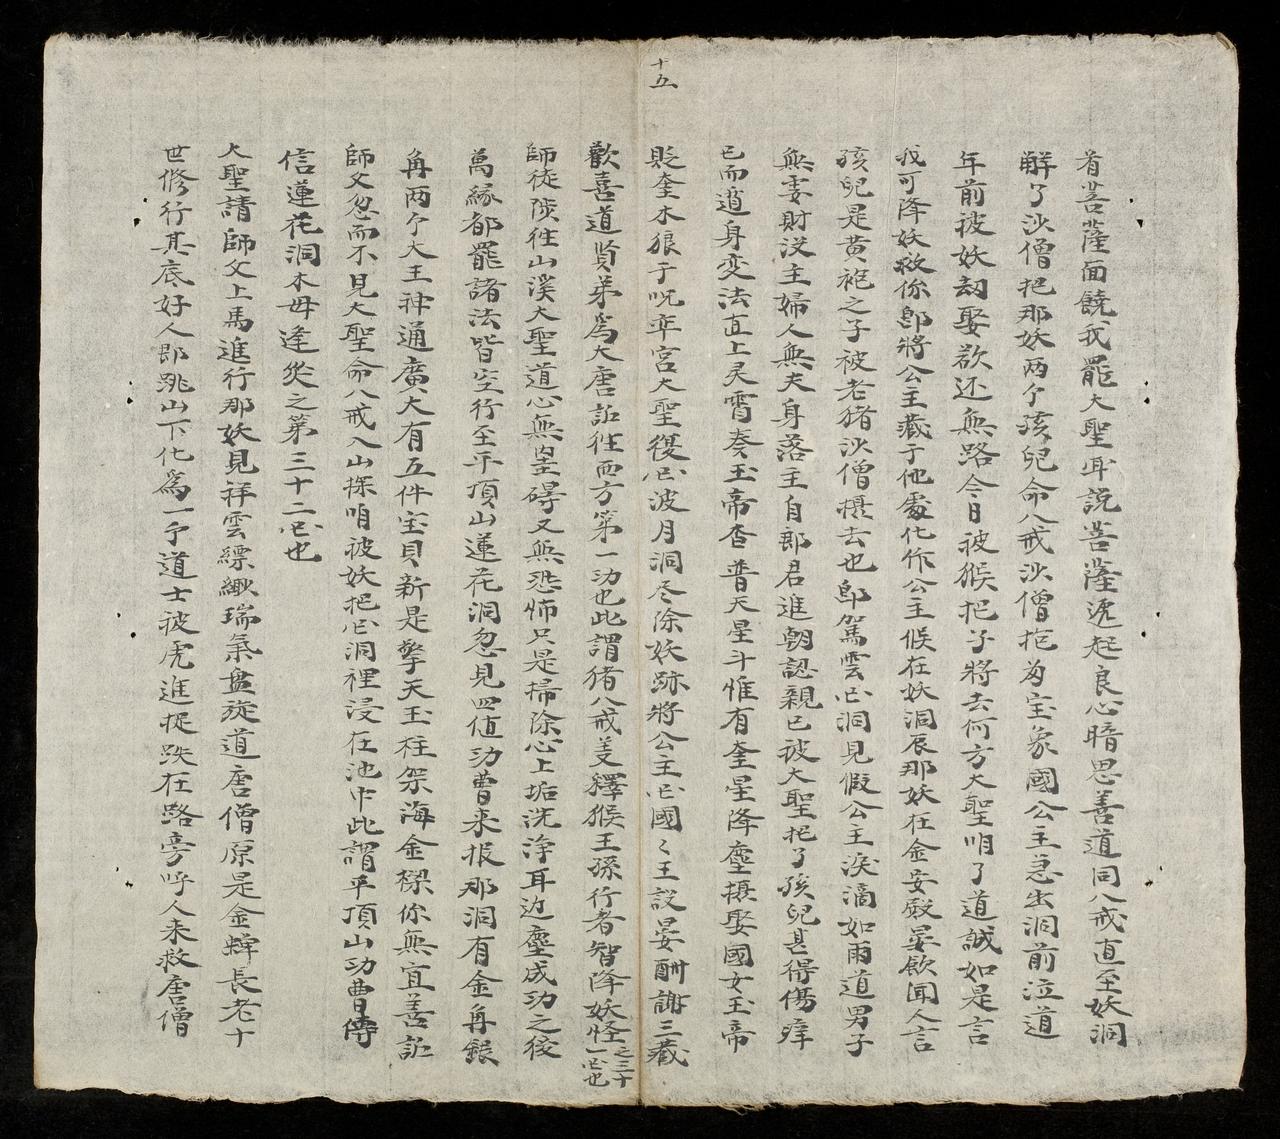 十五
看菩薩面饒我罷大聖耳說菩薩㐌起良心暗思善道同八戒直至妖洞
解了沙僧把那妖兩个孩兒命八戒沙僧拒为宝象國公主急出洞前泣道
年前被妖刼娶欲还無路今日被猴把子將去何方大聖咱了道誠如是言
我可降妖救你即將公主藏于他處化作公主候在妖洞辰那妖在金安殿宴飲聞人言
孩兒是黃袍之子被老猪沙僧摄去也即駕雲囬洞見假公主淚滴如雨道男子
無妻財没主婦人無夫身落主自郎君進朝認親已被大聖把了孩兒甚得傷痒
已而遁身变法直上灵霄奏玉帝查普天星斗惟有奎星降塵摄娶國女玉帝
貶奎木狼于呪率宮大聖復囬波月洞尽除妖跡將公主囬國〻王設宴酧謝三藏
歡喜道賢弟爲大唐詎徃西方第一功也此謂猪八戒羙釋猴王孫行者智降妖怪之三十一囬也
師徒陟徃山溪大聖道心無罣碍又無恐怖只是掃除心上垢洗淨耳边塵成功之後
萬緣都罷諸法皆空行至平頂山蓮花洞忽見四值功曹来报那洞有金角銀
角兩个大王神通廣大有五件宝貝新是擎天玉柱架海金樑你無宜善詎
師父忽而不見大聖命八戒入山探咱被妖把囬洞裡浸在池中此謂平頂山功曹傳
信蓮花洞木母逢災之第三十二囬也
大聖請師父上馬進行那妖見祥雲縹緲瑞氣盘旋道唐僧原是金蟬長老十
世修行其底好人即跳山下化爲一个道士被虎進捉跌在路旁呼人来救唐僧